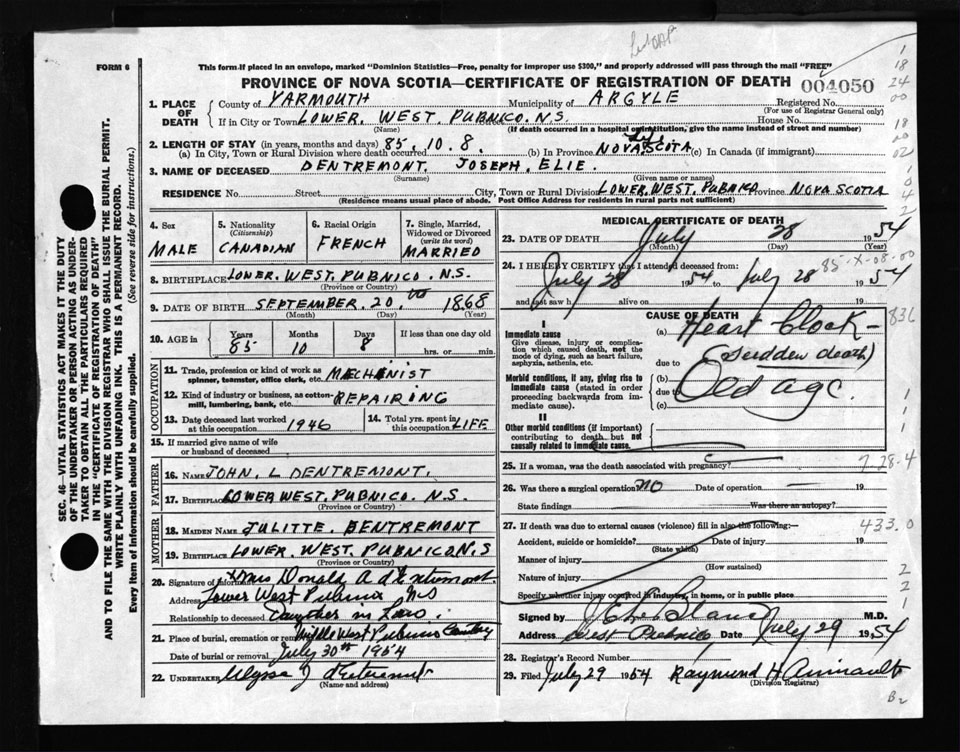 FORM 6
This form if placed in an envelope, marked "Dominion Statistics—Free, penalty for improper use $300," and properly addressed will pass through the mail "FREE"
PROVINCE OF NOVA SCOTIA—CERTIFICATE OF REGISTRATION OF DEATH 004050
1. PLACE OF DEATH County of YARMOUTH Municipality of ARGYLE Registered No.
(For use of Registrar General only)
If in City or Town LOWER. WEST. PUBNICO. N.S. House No.
(Name) (If death occurred in a hospital or institution, give the name instead of street and number)
2. LENGTH OF STAY (in years, months and days) Life
(a) In City, Town or Rural Division where death occurred 85. 10. 8. (b) In Province NOVA SCOTA (c) In Canada (if immigrant)
3. NAME OF DECEASED DENTREMONT. JOSEPH. ELIE.
(Surname) (Given name or names)
RESIDENCE No. Street City, Town or Rural Division LOWER. WEST. PUBNICO Province NOVA SCOTIA
(Residence means usual place of abode. Post Office Address for residents in rural parts not sufficient)
4. Sex MALE
5. Nationality (Citizenship) CANADIAN
6. Racial Origin FRENCH
7. Single, Married, Widowed or Divorced (write the word) MARRIED
8. BIRTHPLACE LOWER. WEST. PUBNICO. N.S.
(Province or Country)
9. DATE OF BIRTH SEPTEMBER. 20. th 1868
(Month) (Day) (Year)
10. AGE in Years 85 Months 10 Days 8 If less than one day old
hrs. or min.
OCCUPATION
11. Trade, profession or kind of work as spinner, teamster, office clerk, etc. MECHINIST
12. Kind of industry or business, as cotton-mill, lumbering, bank, etc. REPAIRING
13. Date deceased last worked at this occupation 1946
14. Total yrs. spent in this occupation LIFE
15. If married give name of wife or husband of deceased
FATHER
16. Name JOHN. L DENTREMONT.
17. Birthplace LOWER WEST. PUBNICO. N.S.
(Province or Country)
MOTHER
18. Maiden Name JULITTE. DENTREMONT
19. Birthplace LOWER. WEST. PUBNICO N.S
(Province or Country)
20. Signature of Informant Mrs Donald A d'Entremont.
Address Lower West Pubnico NS
Relationship to deceased Daughter in Law.
21. Place of burial, cremation or removal Middle West Pubnico Cemetery
Date of burial or removal July 30th 1954
22. UNDERTAKER Ulysse J d'Entremont
(Name and address)
MEDICAL CERTIFICATE OF DEATH
23. DATE OF DEATH July 28 1954
(Month) (Day) (Year)
85-X-08-00
24. I HEREBY CERTIFY that I attended deceased from:
July 28 1954 to July 28 1954
and last saw h alive on 19
CAUSE OF DEATH
836
I
Immediate cause
Give disease, injury or complication which caused death, not the mode of dying, such as heart failure, asphyxia, asthenia, etc.
(a) Heart Block -
due to (Sudden death)
Morbid conditions, if any, giving rise to immediate cause (stated in order proceeding backwards from immediate cause).
(b) Old age.
due to
(c)
II
Other morbid conditions (if important) contributing to death but not causally related to immediate cause.
25. If a woman, was the death associated with pregnancy?
7-28-4
26. Was there a surgical operation? NO Date of operation — 19
State findings Was there an autopsy?
27. If death was due to external causes (violence) fill in also the following:
433.0
Accident, suicide or homicide? Date of injury 19
(State which)
Manner of injury
(How sustained)
Nature of injury
Specify whether injury occurred in industry, in home, or in public place
Signed by M.D.
Address West Pubnico Date July 29 1954
28. Registrar's Record Number
29. Filed July 29 1954 Raymond H Amirault
(Division Registrar)
SEC. 46—VITAL STATISTICS ACT MAKES IT THE DUTY
OF THE UNDERTAKER OR PERSON ACTING AS UNDER-
TAKER TO OBTAIN ALL THE PARTICULARS REQUIRED
IN THE "CERTIFICATE OF REGISTRATION OF DEATH"
AND TO FILE THE SAME WITH THE DIVISION REGISTRAR WHO SHALL ISSUE THE BURIAL PERMIT.
WRITE PLAINLY WITH UNFADING INK. THIS IS A PERMANENT RECORD.
Every item of Information should be carefully supplied. (See reverse side for instructions.)